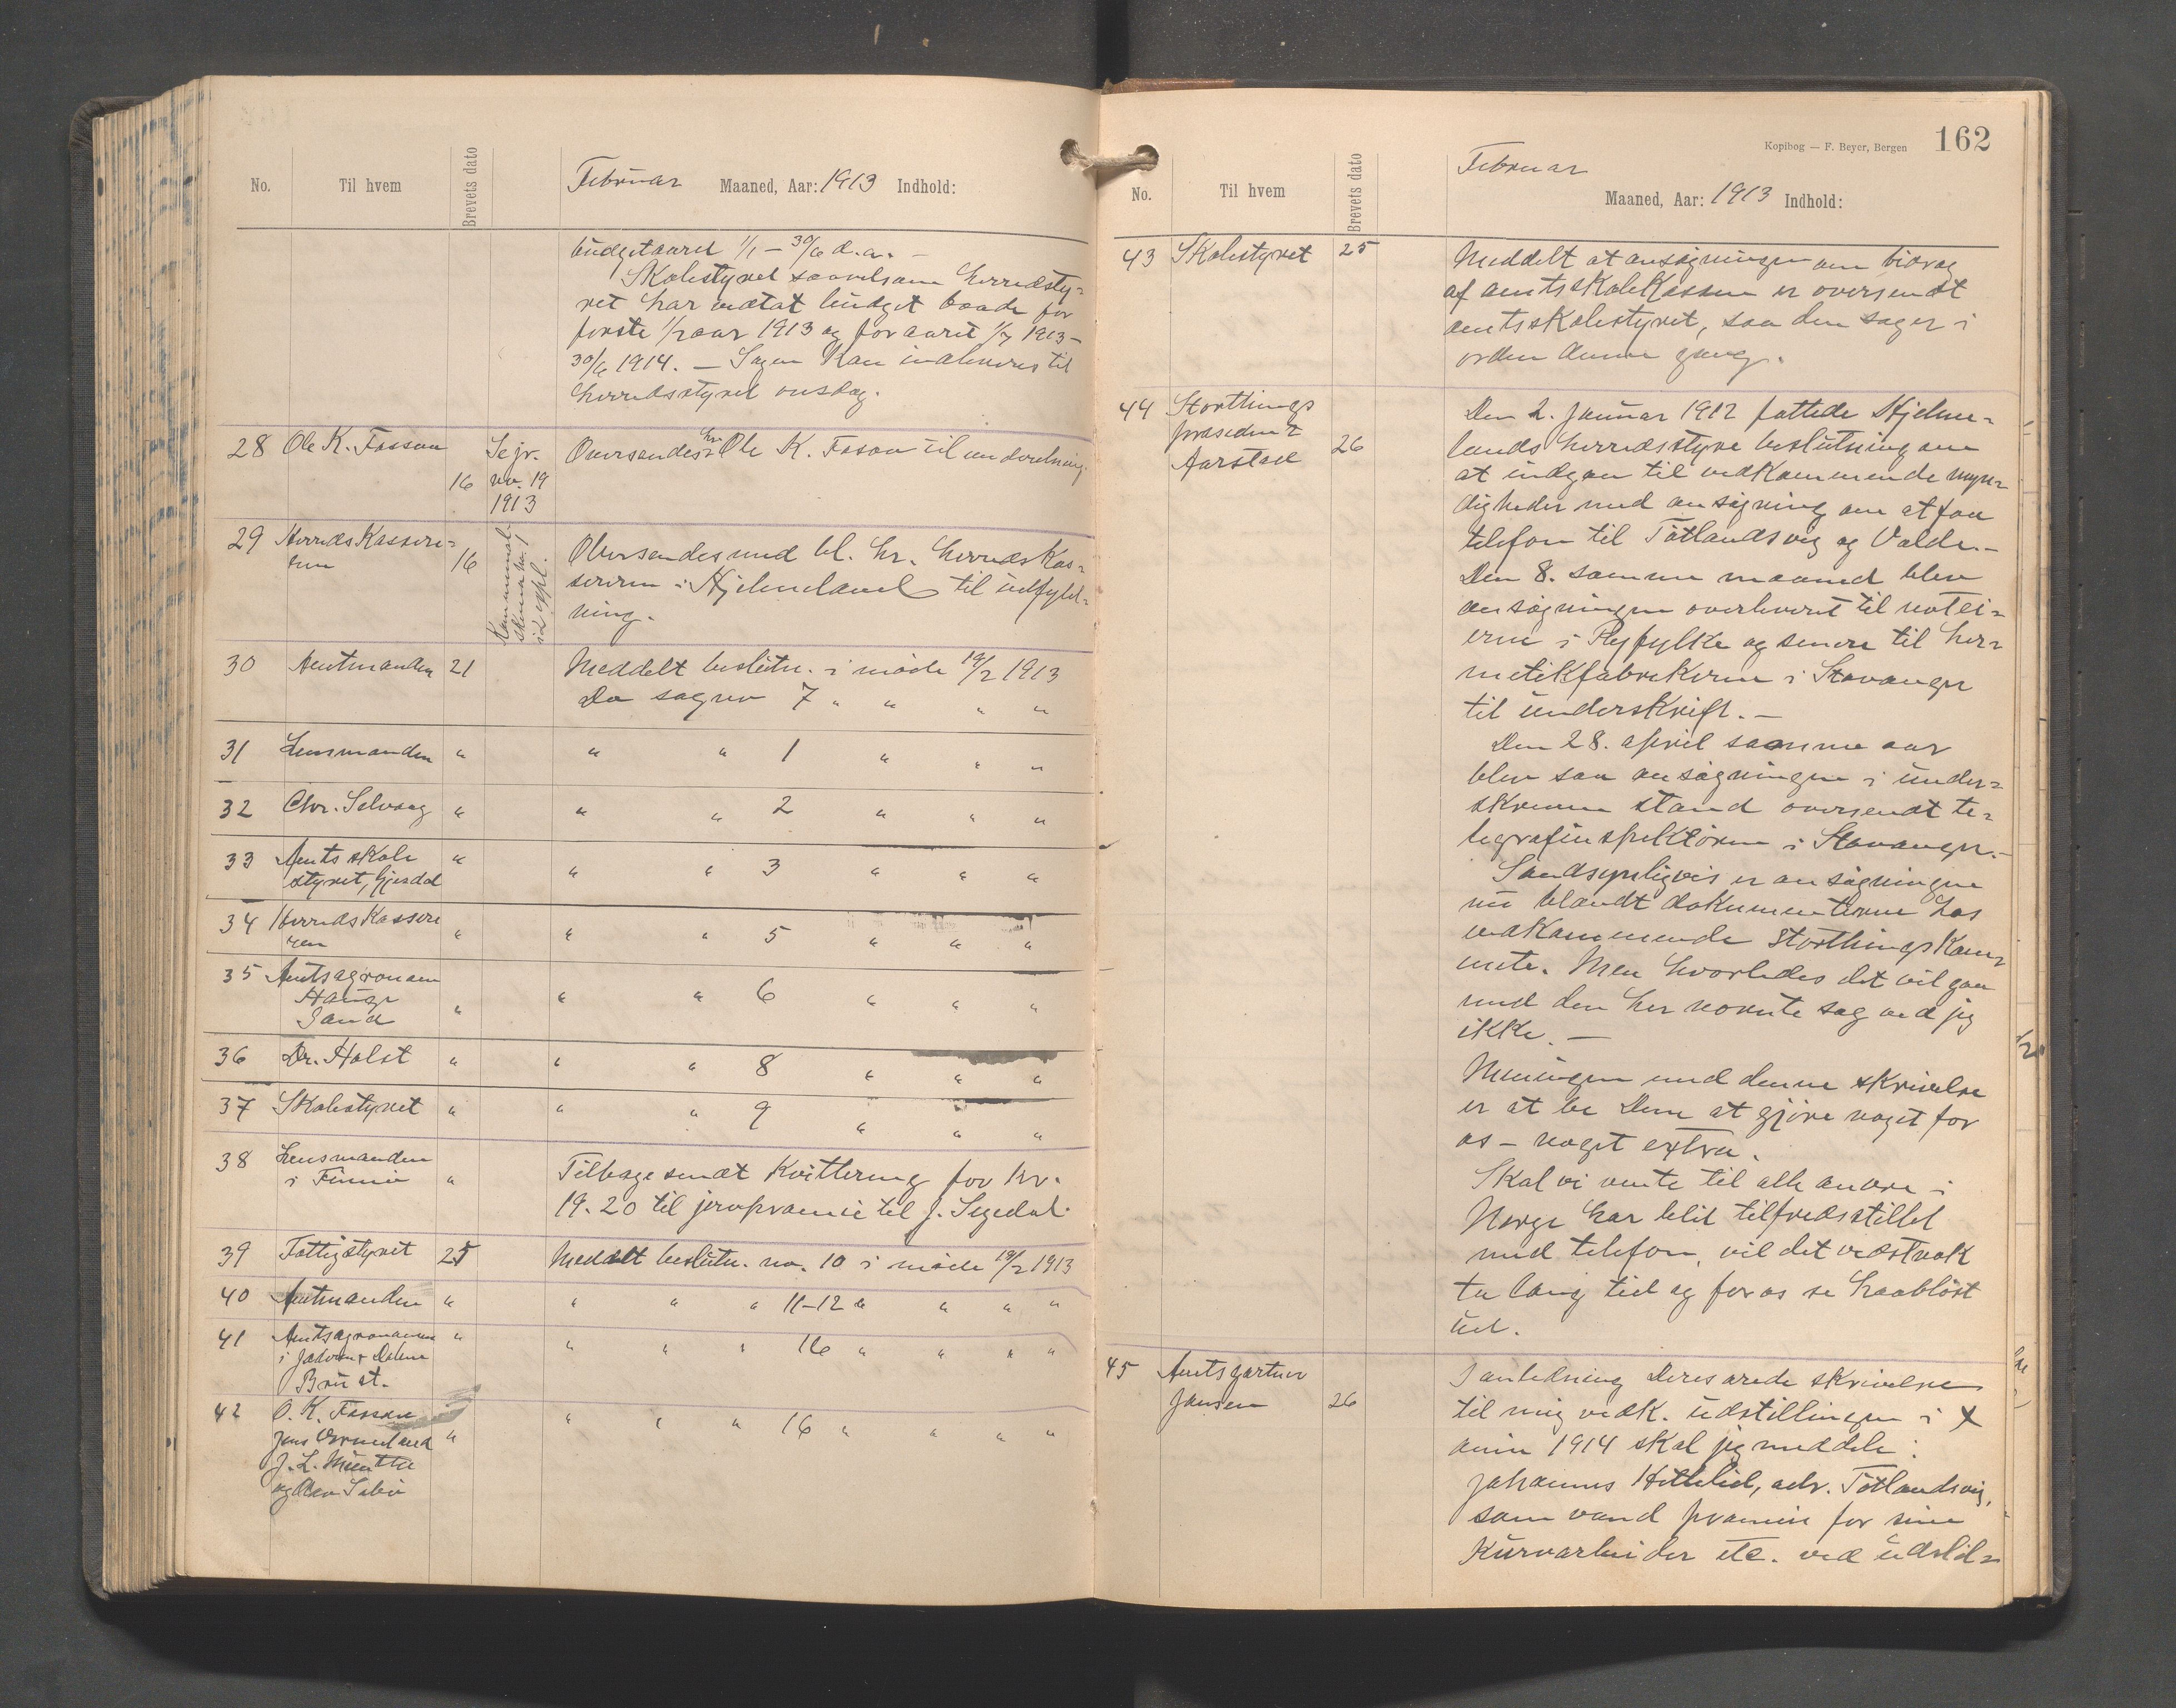 No. Til hvem Brevets dato Februar Maaned, Aar: 1913 Indhold:
budgetaaret 1/1 – 30/6 d.a. –
Skolestyret saavelsom herredsty-
ret har vedtat budget baade for
første 1/2 aar 1913 og for aaret 1/7 1913 –
30/6 1914. – Sagen kan indleveres til
herredsstyret onsdag.
28 Ole K. Fosson 16 Sejr. no. 19 1913 Oversendes hr. Ole K. Fosson til underretning.
29 Herredskassere-
ren 16 Kommunal-
skema no. 1
i 2 expl.
Oversendes med bl. hr. herredskas-
sereren i Hjelmeland til udfyld-
ning.
30 Amtmanden 21 Meddelt beslutn. i møde 19/2 1913
Do sag no 7 " " " "
31 Lensmanden " " " 1 " " "
32 Chr. Selvaag " " " 2 " " "
33 Amtsskole
styret, Gjesdal " " " 3 " " "
34 Herredskassere
ren " " " 5 " " "
35 Amtsagronom
Hauge
Sand " " " 6 " " "
36 Dr. Holst " " " 8 " " "
37 Skolestyret " " " 9 " " "
38 Lensmanden
i Finnø " Tilbagesendt kvittering for kr.
19.20 til jervpræmie til J. Segedal.
39 Fattigstyret 25 Meddelt beslutn. no. 10 i møde 19/2 1913
40 Amtmanden " " " " 11–12 " " " "
41 Amtsagronomen
i Jæderen & Dalene
Bru st. " " " " 16 " " " "
42 O. K. Fosson
Jens Ormeland
J. L. Münthe
og " " " " 16 " " " "
Kopibog — F. Beyer, Bergen 162
No. Til hvem Brevets dato Februar
Maaned, Aar: 1913 Indhold:
43 Skolestyret 25 Meddelt at ansøgningen om bidrag
af amtsskolekassen er oversendt
amtsskolestyret, saa den sag er i
orden denne gang.
44 Storthings
præsident
Aarstad 26
Den 2. januar 1912 fattede Hjelme-
lands herredsstyre beslutning om
at indgaa til vedkommende myn-
digheder med ansøgning om at faa
telefon til Tøtlandsvig og Valde. –
Den 8. samme maaned blev
ansøgningen overleveret til notei-
erne i Ryfylke og senere til her-
metikfabrikerne i Stavanger
til underskrift. –
Den 28. april samme aar
blev saa ansøgningen i under-
skreven stand oversendt te-
legrafinspektøren i Stavanger. –
Sandsynligvis er ansøgningen
nu blandt dokumenterne hos
vedkommende storthingskom-
mite. Men hvorledes det vil gaa
med den her nævnte sag ved jeg
ikke. –
Meningen med denne skrivelse
er at be Dem at gjøre noget for
os – noget extra.
Skal vi vente til alle andre i
Norge har blit tilfredsstillet
med telefon, vil det vistnok
ta lang tid og for os se haabløst
ud.
45 Amtsgartner
Jansen 26
I anledning Deres ærede skrivelse
til mig vedk. udstillingen i X
ania 1914 skal jeg meddele:
Johannes Hetlelid, adr. Tøtlandsvig,
som vand præmie for sine
kurvarbeider etc. ved udstil-